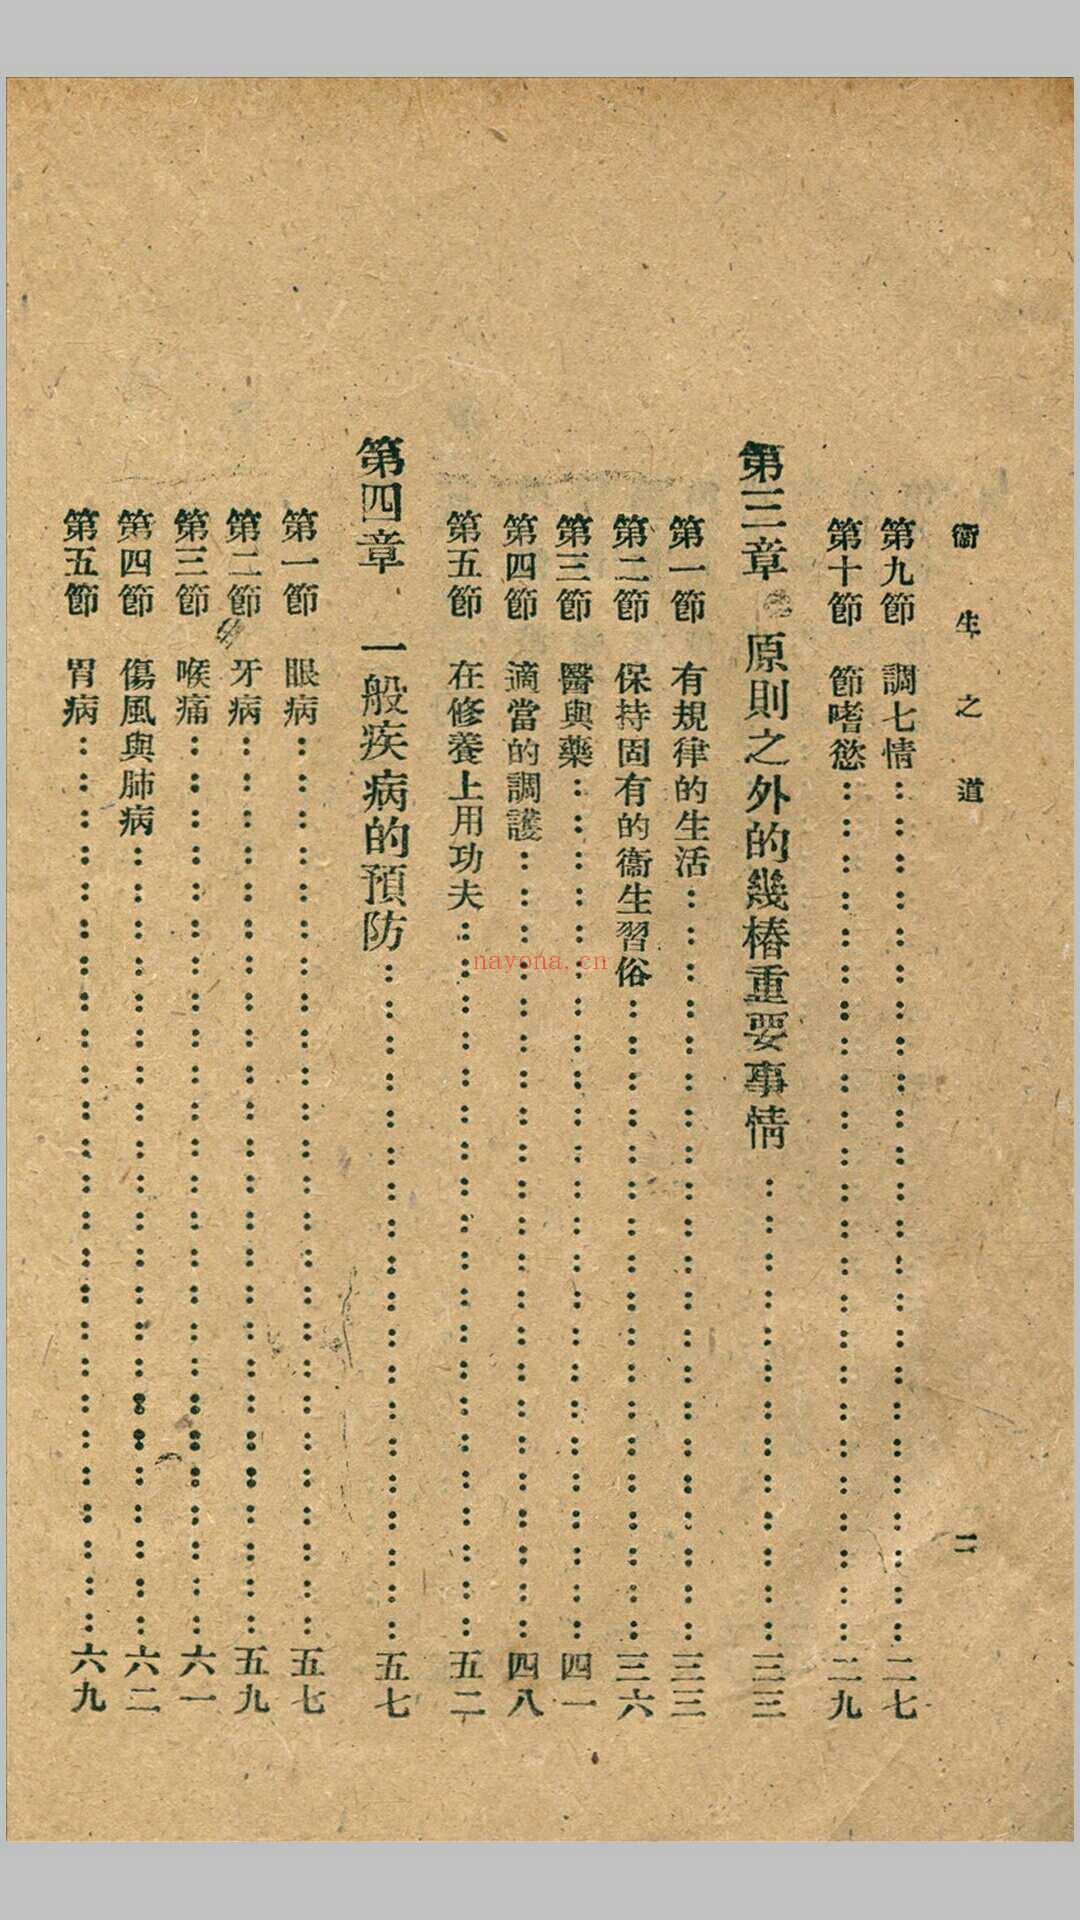 衞生之道 二
第九節 調七情……二七
第十節 節嗜慾……二九
第三章 原則之外的幾樁重要事情……三三
第一節 有規律的生活……三三
第二節 保持固有的衞生習俗……三六
第三節 醫與藥……四一
第四節 適當的調護……四八
第五節 在修養上用功夫……五二
第四章 一般疾病的預防……五七
第一節 眼病……五七
第二節 牙病……五九
第三節 喉痛……六一
第四節 傷風與肺病……六二
第五節 胃病……六九
nayona.cn